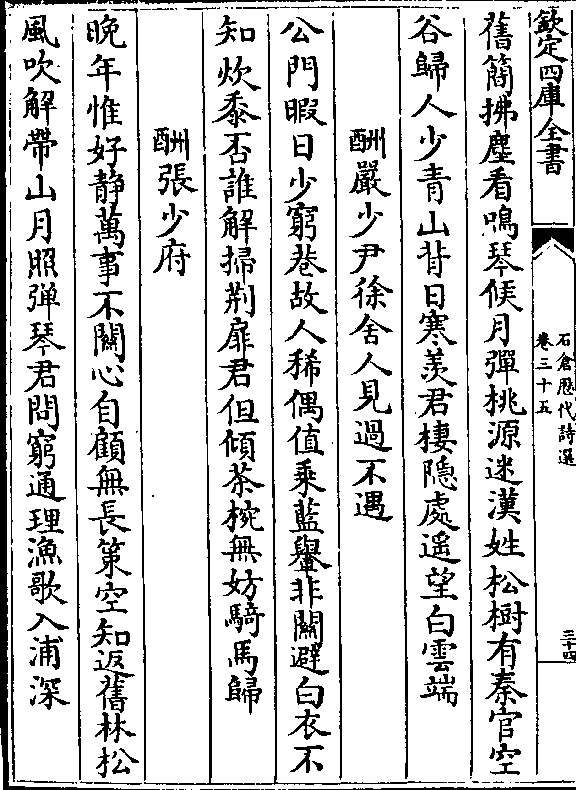 欽定四庫全書
石倉歷代詩選
卷三十五
三十四
舊簡拂塵看鳴琴候月彈桃源迷漢姓松樹有秦官空
谷歸人少青山背日寒羡君棲隱處遥望白雲端
酬嚴少尹徐舍人見過不遇
公門暇日少窮巷故人稀偶值乘藍轝非關避白衣不
知炊黍否誰解掃荆扉君但傾茶椀無妨騎馬歸
酬張少府
晚年惟好静萬事不關心自顧無長策空知返舊林松
風吹解帶山月照弹琴君問窮通理漁歌入浦深